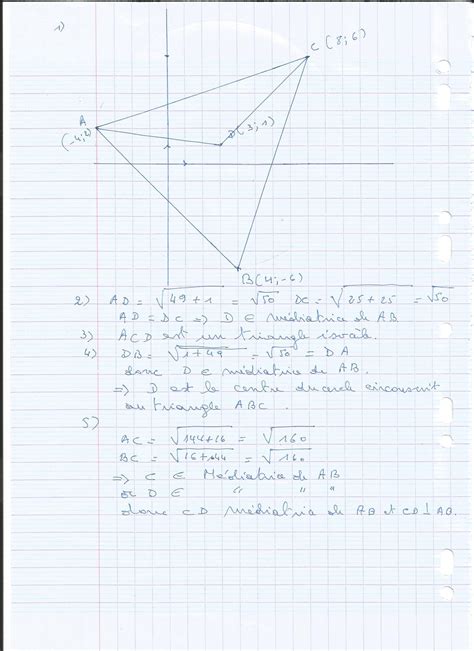 1)
C (8;6)
A
(-4;2)
D(3;1)
B(4;-6)
2) AD = √49+1 = √50 DC = √25+25 = √50
AD = DC => D ∈ médiatrice de AB
3) ACD est un triangle isocèle.
4) DB = √1+49 = √50 = DA
donc D ∈ médiatrice de AB.
=> D est le centre du cercle circonscrit
au triangle ABC.
5)
AC = √144+16 = √160
BC = √16+144 = √160
=> C ∈ Médiatrice de AB
or D ∈ " " "
donc CD médiatrice de AB et CD ⊥ AB.